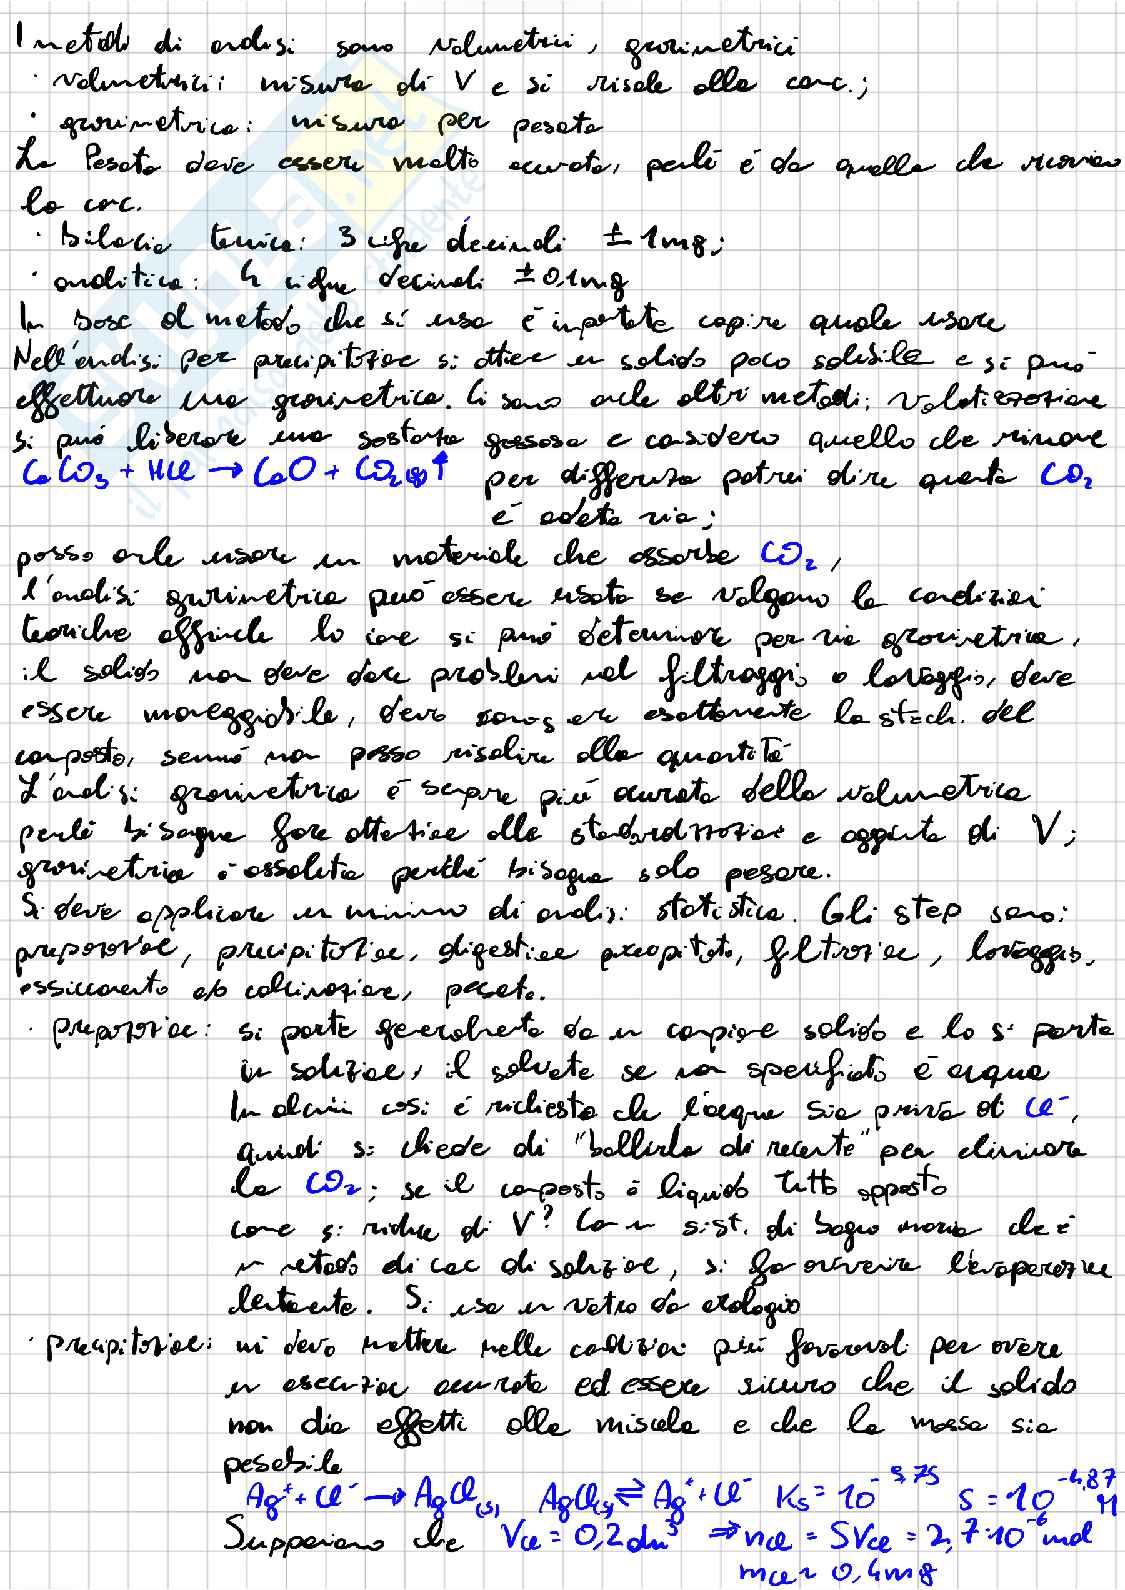 I metodi di analisi sono volumetrici, gravimetrici
· volumetrici: misura di V e si risale alla conc.;
· gravimetrica: misura per pesata
La Pesata deve essere molto accurata, perché è da quella che ricaviamo
la conc.
· bilancia tecnica: 3 cifre decimali ±1mg;
· analitica: 4 cifre decimali ±0,1mg
In base al metodo che si usa è importante capire quale usare
Nell'analisi per precipitazione si ottiene un solido poco solubile e si può
effettuare una gravimetrica. Ci sono anche altri metodi: volatizzazione
si può liberare una sostanza gassosa e considero quello che rimane
CaCO₃ + HCl → CaO + CO₂(g)↑ per differenza potrei dire quanta CO₂
è andata via;
posso anche usare un materiale che assorbe CO₂,
l'analisi gravimetrica può essere usata se valgono le condizioni
teoriche affinché lo ione si può determinare per via gravimetrica,
il solido non deve dare problemi nel filtraggio o lavaggio, deve
essere maneggiabile, devo conoscere esattamente la stech. del
composto, sennò non posso risalire alla quantità
L'analisi gravimetrica è sempre più accurata della volumetrica
perché bisogna fare attenzione alla standardizzazione e aggiunta di V;
gravimetria è assoluta perché bisogna solo pesare.
Si deve applicare un minimo di analisi statistica. Gli step sono:
preparazione, precipitazione, digestione precipitato, filtrazione, lavaggio,
essiccamento e/o calcinazione, pesata.
· preparazione: si parte generalmente da un campione solido e lo si porta
in soluzione, il solvente se non specificato è acqua
In alcuni casi è richiesto che l'acqua sia priva di Cl⁻,
quindi si chiede di "bollirla di recente" per eliminare
la CO₂; se il composto è liquido tutto apposto
come si riduce di V? Con un sist. di bagno maria che è
un metodo di conc di soluzione, si fa avvenire l'evaporazione
lentamente. Si usa un vetro da orologio
· precipitazione: mi devo mettere nelle condizioni più favorevoli per avere
un esecuzione accurata ed essere sicuro che il solido
non dia effetti alla miscela e che la massa sia
pesabile
Ag⁺ + Cl⁻ → AgCl(s) AgCl(s) ⇌ Ag⁺ + Cl⁻ Ks = 10⁻⁹·⁷⁵ S = 10⁻⁴·⁸⁷ M
Supponiamo che Vcl = 0,2dm³ ⇒ ncl = SVcl = 2,7·10⁻⁶ mol
mcl ≈ 0,4mg